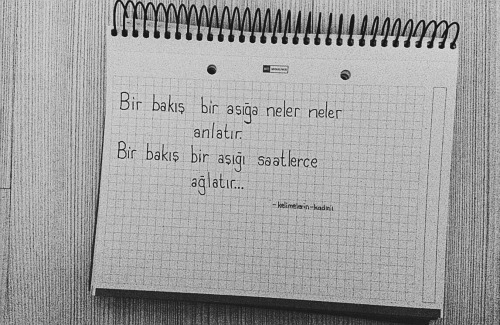 Bir bakış bir aşığa neler neler
anlatır.
Bir bakış bir aşığı saatlerce
ağlatır...
-kelimelerin-kadını